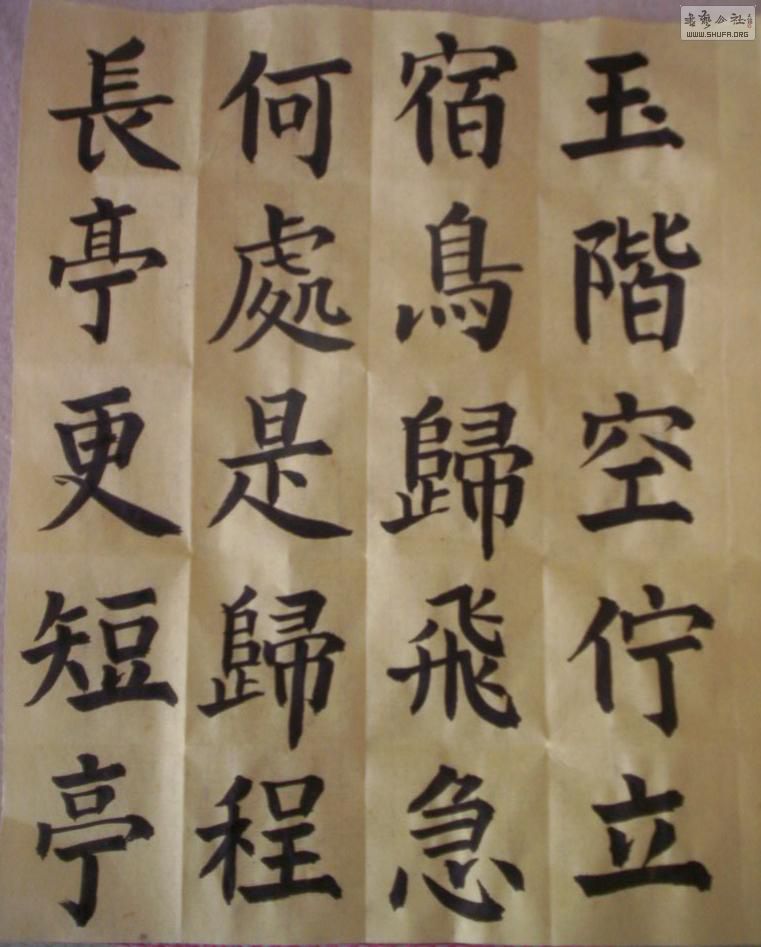 玉階空佇立
宿鳥歸飛急
何處是歸程
長亭更短亭
WWW.SHUFA.ORG